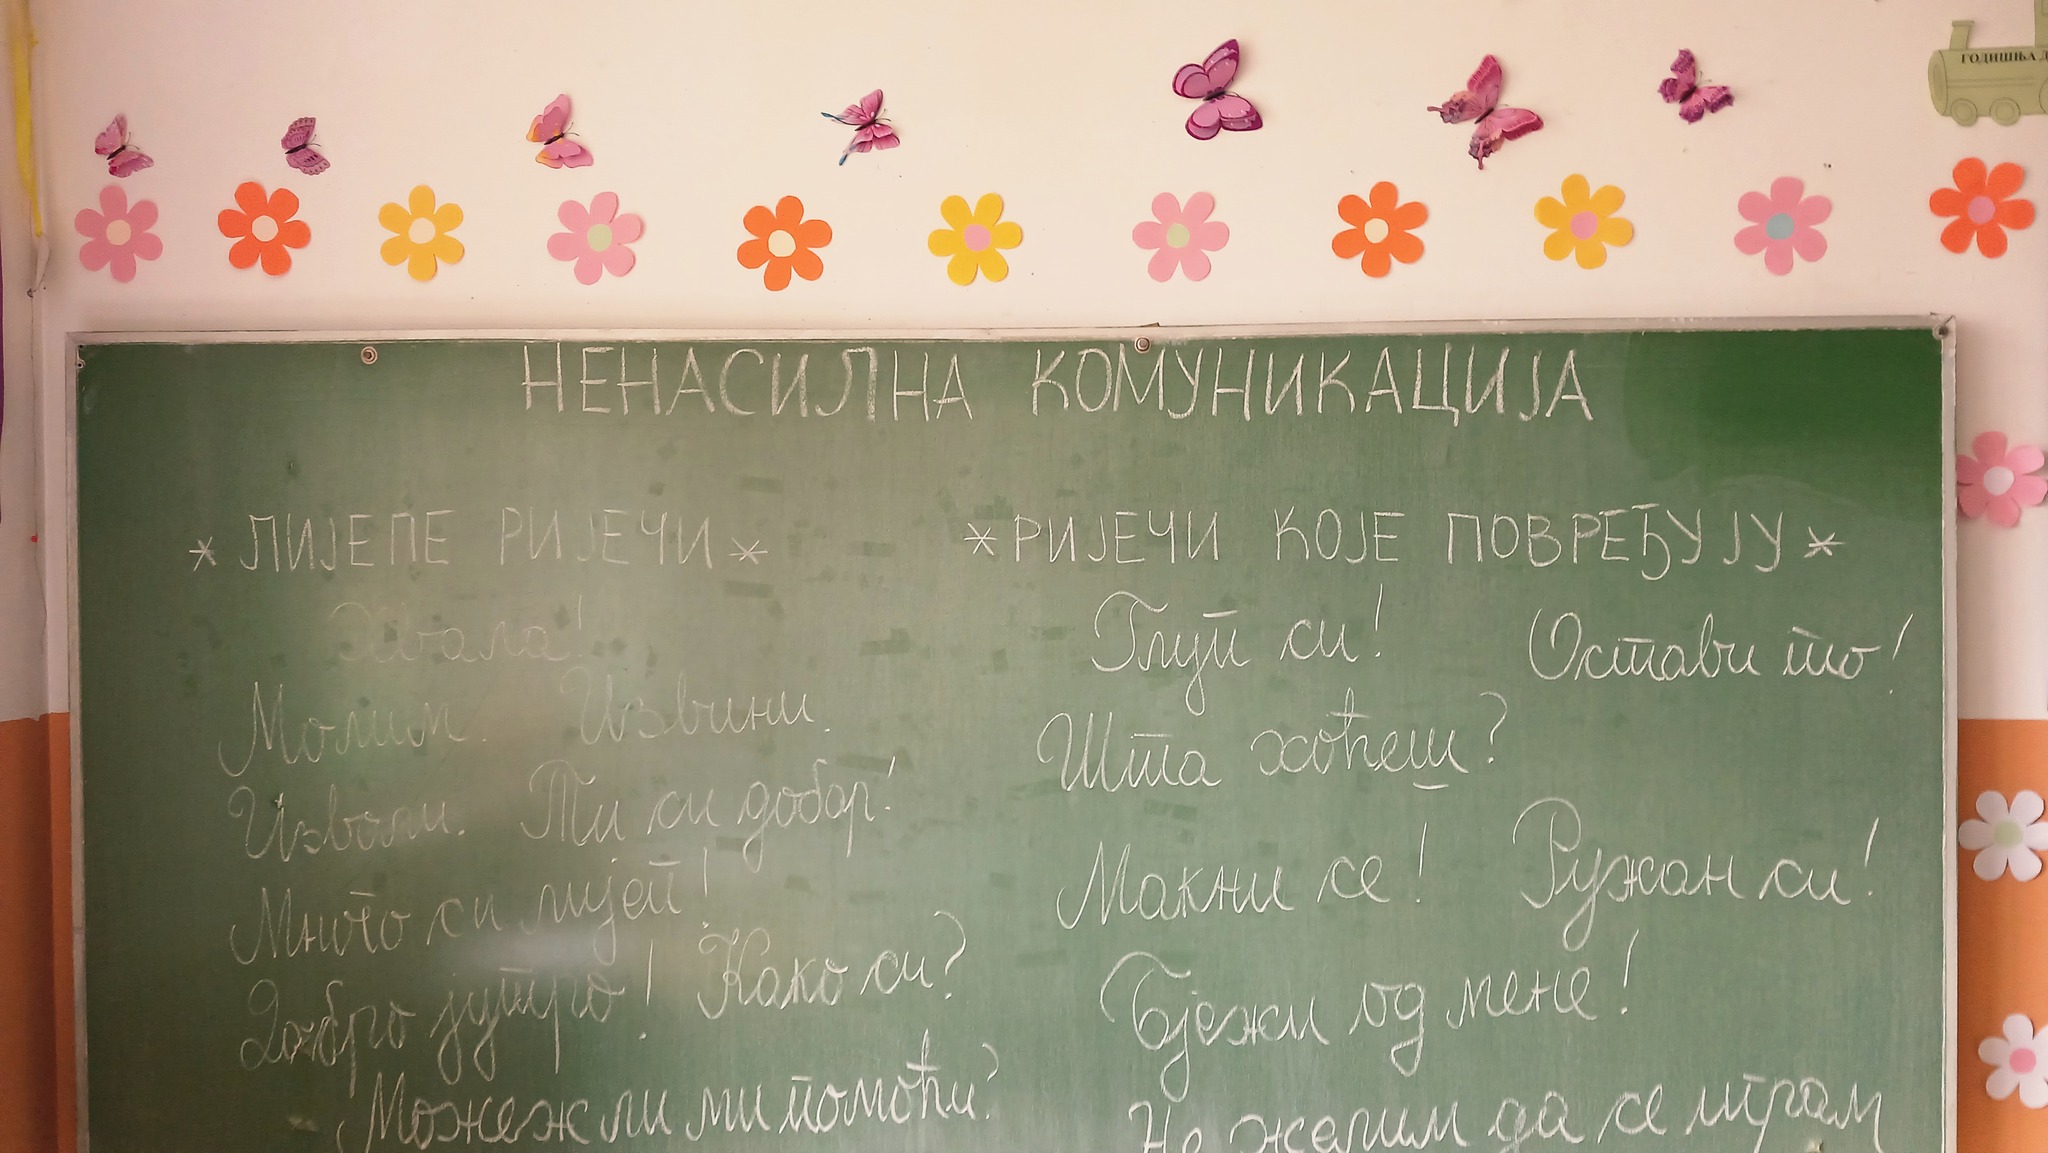 ГОДИШЊА
НЕНАСИЛНА КОМУНИКАЦИЈА
* ЛИЈЕПЕ РИЈЕЧИ *
Хвала!
Молим. Извини.
Изволи. Ти си добар!
Много си лијеп!
Добро јутро! Како си?
Можеж ли ми помоћи?
* РИЈЕЧИ КОЈЕ ПОВРЕЂУЈУ *
Глуп си! Остави то!
Шта хоћеш?
Макни се! Ружан си!
Бјежи од мене!
Не желим да се играм